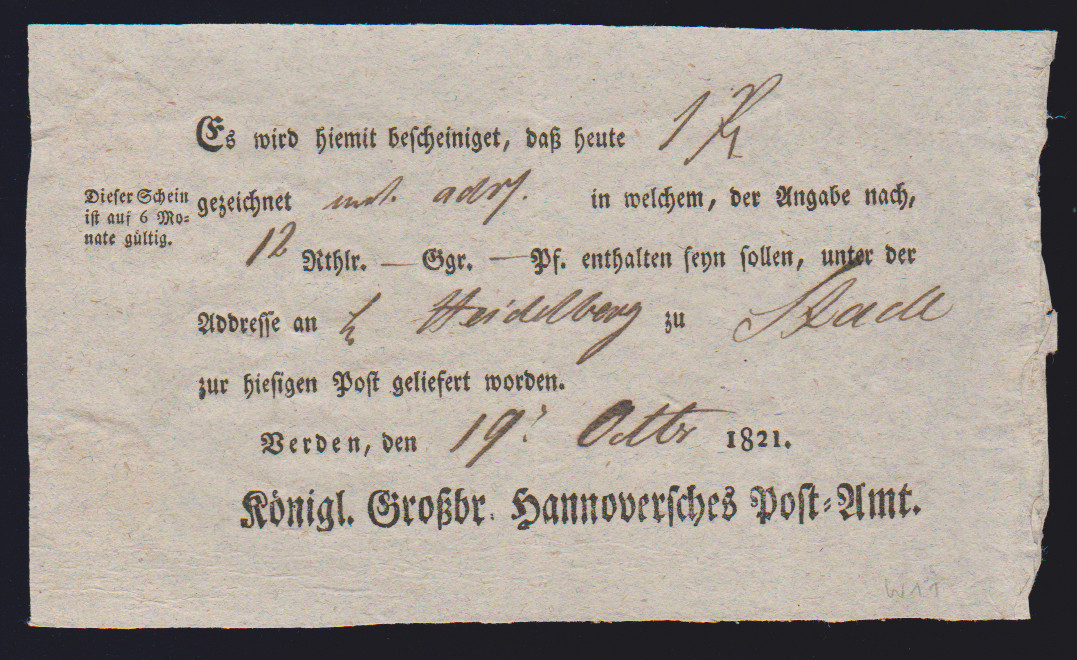 Es wird hiemit bescheiniget, daß heute 1
Dieser Schein
ist auf 6 Mo-
nate gültig.
gezeichnet mit adrs. in welchem, der Angabe nach,
12 Rthlr. — Ggr. — Pf. enthalten seyn sollen, unter der
Addresse an H Heidelberg zu Stade
zur hiesigen Post geliefert worden.
Verden, den 19. Octbr 1821.
Königl. Großbr. Hannoversches Post-Amt.